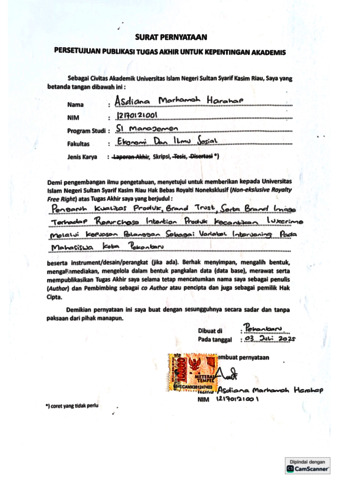 SURAT PERNYATAAN
PERSETUJUAN PUBLIKASI TUGAS AKHIR UNTUK KEPENTINGAN AKADEMIS
Sebagai Civitas Akademik Universitas Islam Negeri Sultan Syarif Kasim Riau, Saya yang
betanda tangan dibawah ini :
Nama : Asdiana Marhamah Harahap
NIM : 12170121001
Program Studi : S1 Manajemen
Fakultas : Ekonomi Dan Ilmu Sosial
Jenis Karya : Laporan Akhir, Skripsi, Tesis, Disertasi *)
Demi pengembangan ilmu pengetahuan, menyetujui untuk memberikan kepada Universitas
Islam Negeri Sultan Syarif Kasim Riau Hak Bebas Royalti Noneksklusif (Non-ekslusive Royalty
Free Right) atas Tugas Akhir saya yang berjudul :
Pengaruh Kualitas Produk, Brand Trust, Serta Brand Image
Terhadap Repurchase Intention Produk Kecantikan Luxcrime
Melalui Kepuasan Pelanggan Sebagai Variabel Intervening Pada
Mahasiswa Kota Pekanbaru
beserta instrument/desain/perangkat (jika ada). Berhak menyimpan, mengalih bentuk,
mengaFormediakan, mengelola dalam bentuk pangkalan data (data base), merawat serta
mempublikasikan Tugas Akhir saya selama tetap mencatumkan nama saya sebagai penulis
(Author) dan Pembimbing sebagai co Author atau pencipta dan juga sebagai pemilik Hak
Cipta.
Demikian pernyataan ini saya buat dengan sesungguhnya secara sadar dan tanpa
paksaan dari pihak manapun.
Dibuat di : Pekanbaru
Pada tanggal : 03 Juli 2025
mbuat pernyataan
METERAI
TEMPEL
Asdiana Marhamah Harahap
NIM 12170121001
*) coret yang tidak perlu
Dipindai dengan
CamScanner